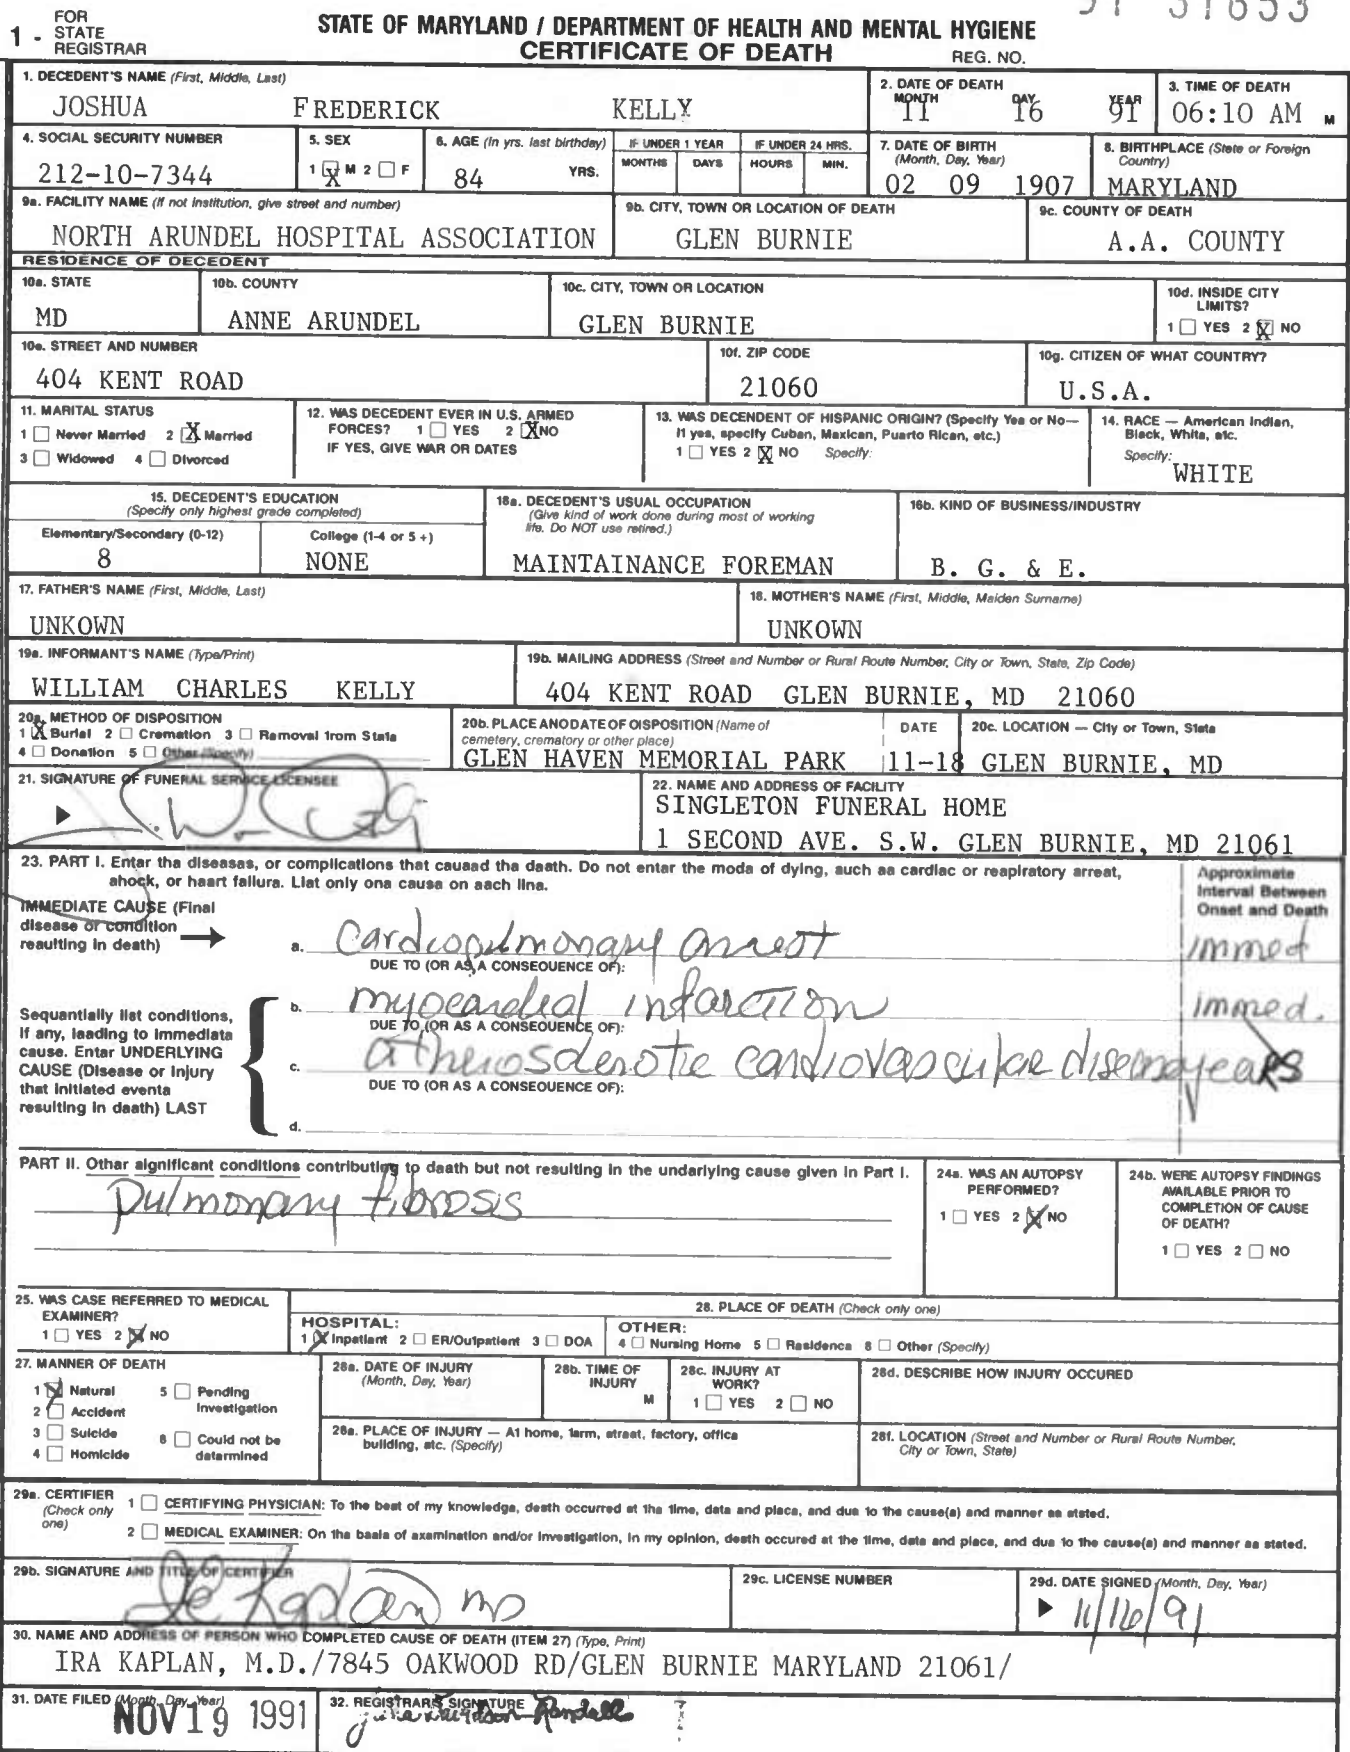 1 - FOR STATE REGISTRAR
STATE OF MARYLAND / DEPARTMENT OF HEALTH AND MENTAL HYGIENE
CERTIFICATE OF DEATH
REG. NO.
1. DECEDENT'S NAME (First, Middle, Last)
JOSHUA FREDERICK KELLY
2. DATE OF DEATH
MONTH DAY YEAR
11 16 91
3. TIME OF DEATH
06:10 AM M
4. SOCIAL SECURITY NUMBER
212-10-7344
5. SEX
1 ☒ M 2 ☐ F
6. AGE (In yrs. last birthday)
84 YRS.
IF UNDER 1 YEAR
MONTHS DAYS
IF UNDER 24 HRS.
HOURS MIN.
7. DATE OF BIRTH
(Month, Day, Year)
02 09 1907
8. BIRTHPLACE (State or Foreign Country)
MARYLAND
9a. FACILITY NAME (If not institution, give street and number)
NORTH ARUNDEL HOSPITAL ASSOCIATION
9b. CITY, TOWN OR LOCATION OF DEATH
GLEN BURNIE
9c. COUNTY OF DEATH
A.A. COUNTY
RESIDENCE OF DECEDENT
10a. STATE
MD
10b. COUNTY
ANNE ARUNDEL
10c. CITY, TOWN OR LOCATION
GLEN BURNIE
10d. INSIDE CITY LIMITS?
1 ☐ YES 2 ☒ NO
10e. STREET AND NUMBER
404 KENT ROAD
10f. ZIP CODE
21060
10g. CITIZEN OF WHAT COUNTRY?
U.S.A.
11. MARITAL STATUS
1 ☐ Never Married 2 ☒ Married
3 ☐ Widowed 4 ☐ Divorced
12. WAS DECEDENT EVER IN U.S. ARMED
FORCES? 1 ☐ YES 2 ☒ NO
IF YES, GIVE WAR OR DATES
13. WAS DECENDENT OF HISPANIC ORIGIN? (Specify Yes or No—
If yes, specify Cuban, Mexican, Puerto Rican, etc.)
1 ☐ YES 2 ☒ NO Specify:
14. RACE — American Indian,
Black, White, etc.
Specify:
WHITE
15. DECEDENT'S EDUCATION
(Specify only highest grade completed)
Elementary/Secondary (0-12)
8
College (1-4 or 5 +)
NONE
16a. DECEDENT'S USUAL OCCUPATION
(Give kind of work done during most of working
life. Do NOT use retired.)
MAINTAINANCE FOREMAN
16b. KIND OF BUSINESS/INDUSTRY
B. G. & E.
17. FATHER'S NAME (First, Middle, Last)
UNKOWN
18. MOTHER'S NAME (First, Middle, Maiden Surname)
UNKOWN
19a. INFORMANT'S NAME (Type/Print)
WILLIAM CHARLES KELLY
19b. MAILING ADDRESS (Street and Number or Rural Route Number, City or Town, State, Zip Code)
404 KENT ROAD GLEN BURNIE, MD 21060
20a. METHOD OF DISPOSITION
1 ☒ Burial 2 ☐ Cremation 3 ☐ Removal from State
4 ☐ Donation 5 ☐ Other (Specify)
20b. PLACE AND DATE OF DISPOSITION (Name of
cemetery, crematory or other place)
GLEN HAVEN MEMORIAL PARK
DATE
11-18
20c. LOCATION — City or Town, State
GLEN BURNIE, MD
21. SIGNATURE OF FUNERAL SERVICE LICENSEE
22. NAME AND ADDRESS OF FACILITY
SINGLETON FUNERAL HOME
1 SECOND AVE. S.W. GLEN BURNIE, MD 21061
23. PART I. Enter the diseases, or complications that caused the death. Do not enter the mode of dying, such as cardiac or respiratory arrest,
shock, or heart failure. List only one cause on each line.
Approximate
Interval Between
Onset and Death
IMMEDIATE CAUSE (Final
disease or condition
resulting in death)
a. Cardiopulmonary arrest immed
DUE TO (OR AS A CONSEQUENCE OF):
b. myocardial infarction immed.
DUE TO (OR AS A CONSEQUENCE OF):
Sequentially list conditions,
if any, leading to immediate
cause. Enter UNDERLYING
CAUSE (Disease or injury
that initiated events
resulting in death) LAST
c. atherosclerotic cardiovascular disease years
DUE TO (OR AS A CONSEQUENCE OF):
d.
PART II. Other significant conditions contributing to death but not resulting in the underlying cause given in Part I.
pulmonary fibrosis
24a. WAS AN AUTOPSY
PERFORMED?
1 ☐ YES 2 ☒ NO
24b. WERE AUTOPSY FINDINGS
AVAILABLE PRIOR TO
COMPLETION OF CAUSE
OF DEATH?
1 ☐ YES 2 ☐ NO
25. WAS CASE REFERRED TO MEDICAL
EXAMINER?
1 ☐ YES 2 ☒ NO
26. PLACE OF DEATH (Check only one)
HOSPITAL:
1 ☒ Inpatient 2 ☐ ER/Outpatient 3 ☐ DOA
OTHER:
4 ☐ Nursing Home 5 ☐ Residence 6 ☐ Other (Specify)
27. MANNER OF DEATH
1 ☒ Natural 5 ☐ Pending
Investigation
2 ☐ Accident
3 ☐ Suicide 6 ☐ Could not be
determined
4 ☐ Homicide
28a. DATE OF INJURY
(Month, Day, Year)
28b. TIME OF
INJURY
M
28c. INJURY AT
WORK?
1 ☐ YES 2 ☐ NO
28d. DESCRIBE HOW INJURY OCCURED
28e. PLACE OF INJURY — At home, farm, street, factory, office
building, etc. (Specify)
28f. LOCATION (Street and Number or Rural Route Number,
City or Town, State)
29a. CERTIFIER
(Check only
one)
1 ☐ CERTIFYING PHYSICIAN: To the best of my knowledge, death occurred at the time, date and place, and due to the cause(s) and manner as stated.
2 ☐ MEDICAL EXAMINER: On the basis of examination and/or investigation, in my opinion, death occured at the time, date and place, and due to the cause(s) and manner as stated.
29b. SIGNATURE AND TITLE OF CERTIFIER
Kaplan MD
29c. LICENSE NUMBER
29d. DATE SIGNED (Month, Day, Year)
11/16/91
30. NAME AND ADDRESS OF PERSON WHO COMPLETED CAUSE OF DEATH (ITEM 27) (Type, Print)
IRA KAPLAN, M.D./7845 OAKWOOD RD/GLEN BURNIE MARYLAND 21061/
31. DATE FILED (Month, Day, Year)
NOV 19 1991
32. REGISTRAR'S SIGNATURE
Randall